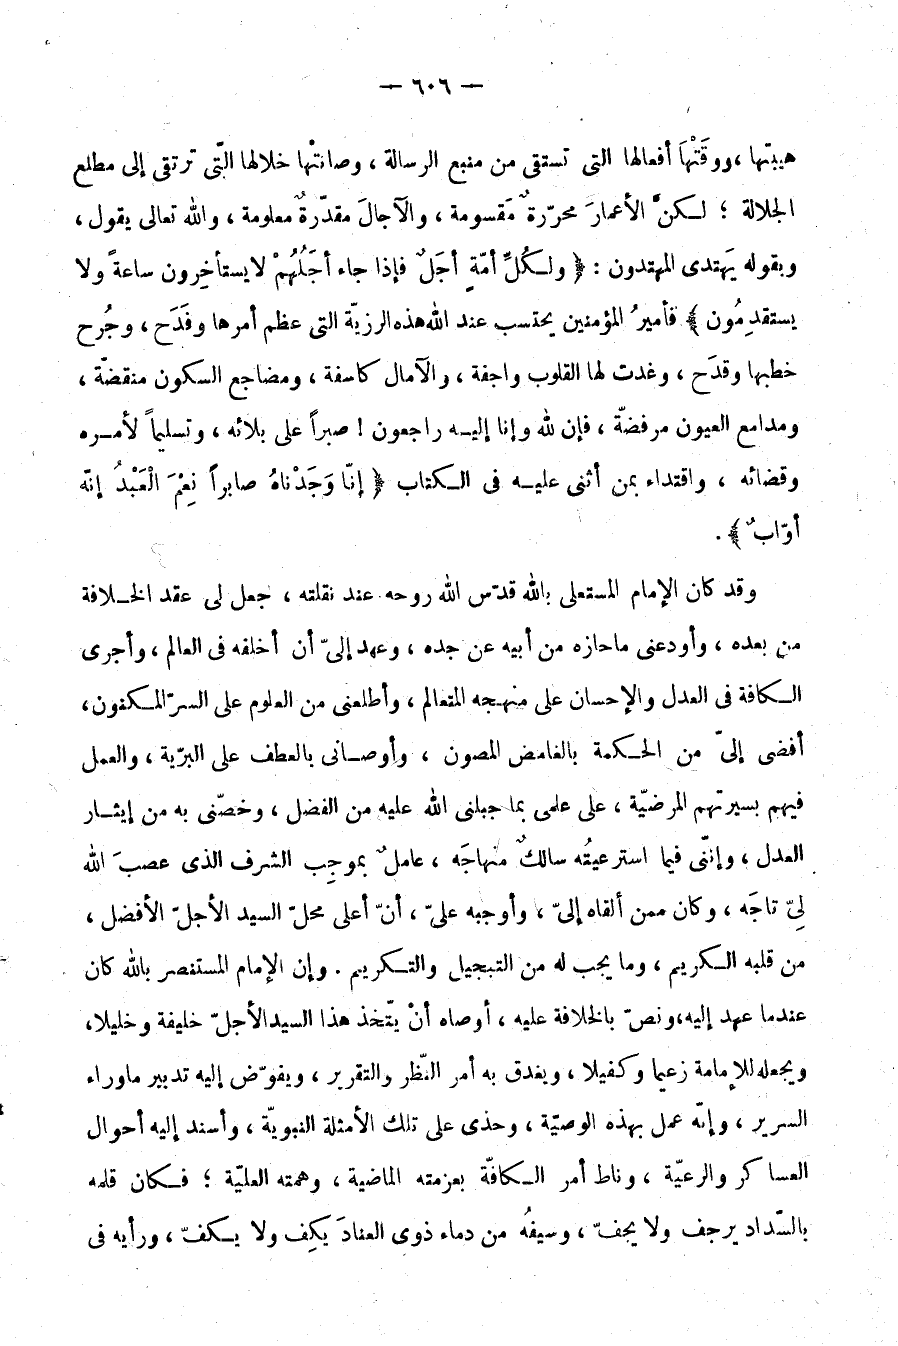 — ٦٠٦ —
هيبتها ، ووقَتْها أفعالها التى تستقى من منبع الرسالة ، وصانتْها خلالها التّى ترتقى إلى مطلع
الجلالة ؛ لكنّ الأعمارَ محرّرةٌ مَقسومة ، والآجالَ مقدّرةٌ معلومة ، والله تعالى يقول ،
وبقوله يَهتدى المهتدون : ﴿ ولكُلِّ أمّةٍ أجَلٌ فإذا جاء أجَلُهُمْ لايستأخِرون ساعةً ولا
يستقدِمُون ﴾ فأميرُ المؤمنين يحتسب عند الله هذه الرزيّة التى عظم أمرها وفَدَح ، وجُرح
خطبها وقدَح ، وغدت لها القلوب واجفة ، والآمال كاسفة ، ومضاجع السكون منقضّة ،
ومدامع العيون مرفضّة ، فإن لله وإنا إليه راجعون ! صبراً على بلائه ، وتسليماً لأمره
وقضائه ، واقتداء بمن أثنى عليه فى الكتاب ﴿ إنّا وَجَدْناهُ صابراً نِعْمَ الْعَبْدُ إنّه
أوّابٌ ﴾ .
وقد كان الإمام المستعلى بالله قدّس الله روحه عند نقلته ، جعل لى عقد الخلافة
من بعده ، وأودعنى ماحازه من أبيه عن جده ، وعهد إلىّ أن أخلفه فى العالم ، وأجرى
الكافة فى العدل والإحسان على منهجه المتعالم ، وأطلعنى من العلوم على السرّ المكنون ،
أفضى إلىّ من الحكمة بالغامض المصون ، وأوصانى بالعطف على البرّية ، والعمل
فيهم بسيرتهم المرضيّة ، على علمى بما جبلنى الله عليه من الفضل ، وخصّنى به من إيثار
العدل ، وإنّنى فيما استرعيتُه سالكٌ منهاجَه ، عاملٌ بموجِب الشرف الذى عصبَ الله
لِىّ تاجَه ، وكان ممن ألقاه إلىّ ، وأوجبه علىّ ، أنّ أعلى محلّ السيد الأجلّ الأفضل ،
من قلبه الكريم ، وما يجب له من التبجيل والتكريم . وإن الإمام المستنصر بالله كان
عندما عهد إليه ، ونصّ بالخلافة عليه ، أوصاه أنْ يتّخذ هذا السيد الأجلّ خليفة وخليلا،
ويجعله للإمامة زعيما وكفيلا ، ويغدق به أمر النّظر والتقرير ، ويفوّض إليه تدبير ماوراء
السرير ، وإنّه عمل بهذه الوصيّة ، وحذى على تلك الأمثلة النبويّة ، وأسند إليه أحوال
العساكر والرعيّة ، وناط أمر الكافّة بعزمته الماضية ، وهمته العليّة ؛ فكان قلمه
بالسّداد يرجف ولا يجفّ ، وسيفُه من دماء ذوى العنادَ يكِف ولا يكفّ ، ورأيه فى